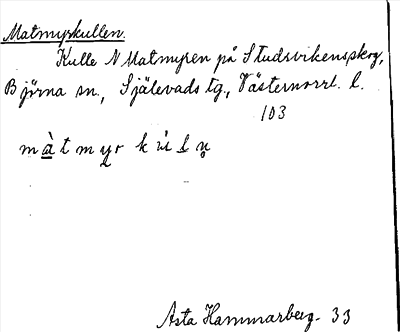 Matmyrkullen.
Kulle N Matmyren på Studsvikens skog,
Björna sn., Själevads tg., Västernorrl. l.
103
m à t m y r k ù l n
Asta Hammarberg. 33